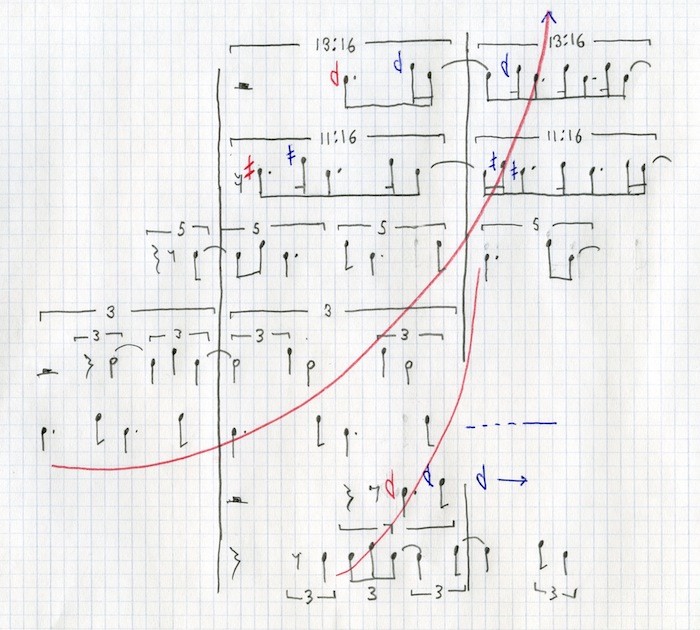 13:16 13:16
d d d
11:16 11:16
5 5 5 5
3 3
3 3 3 3
d d d
7
3 3 3 3